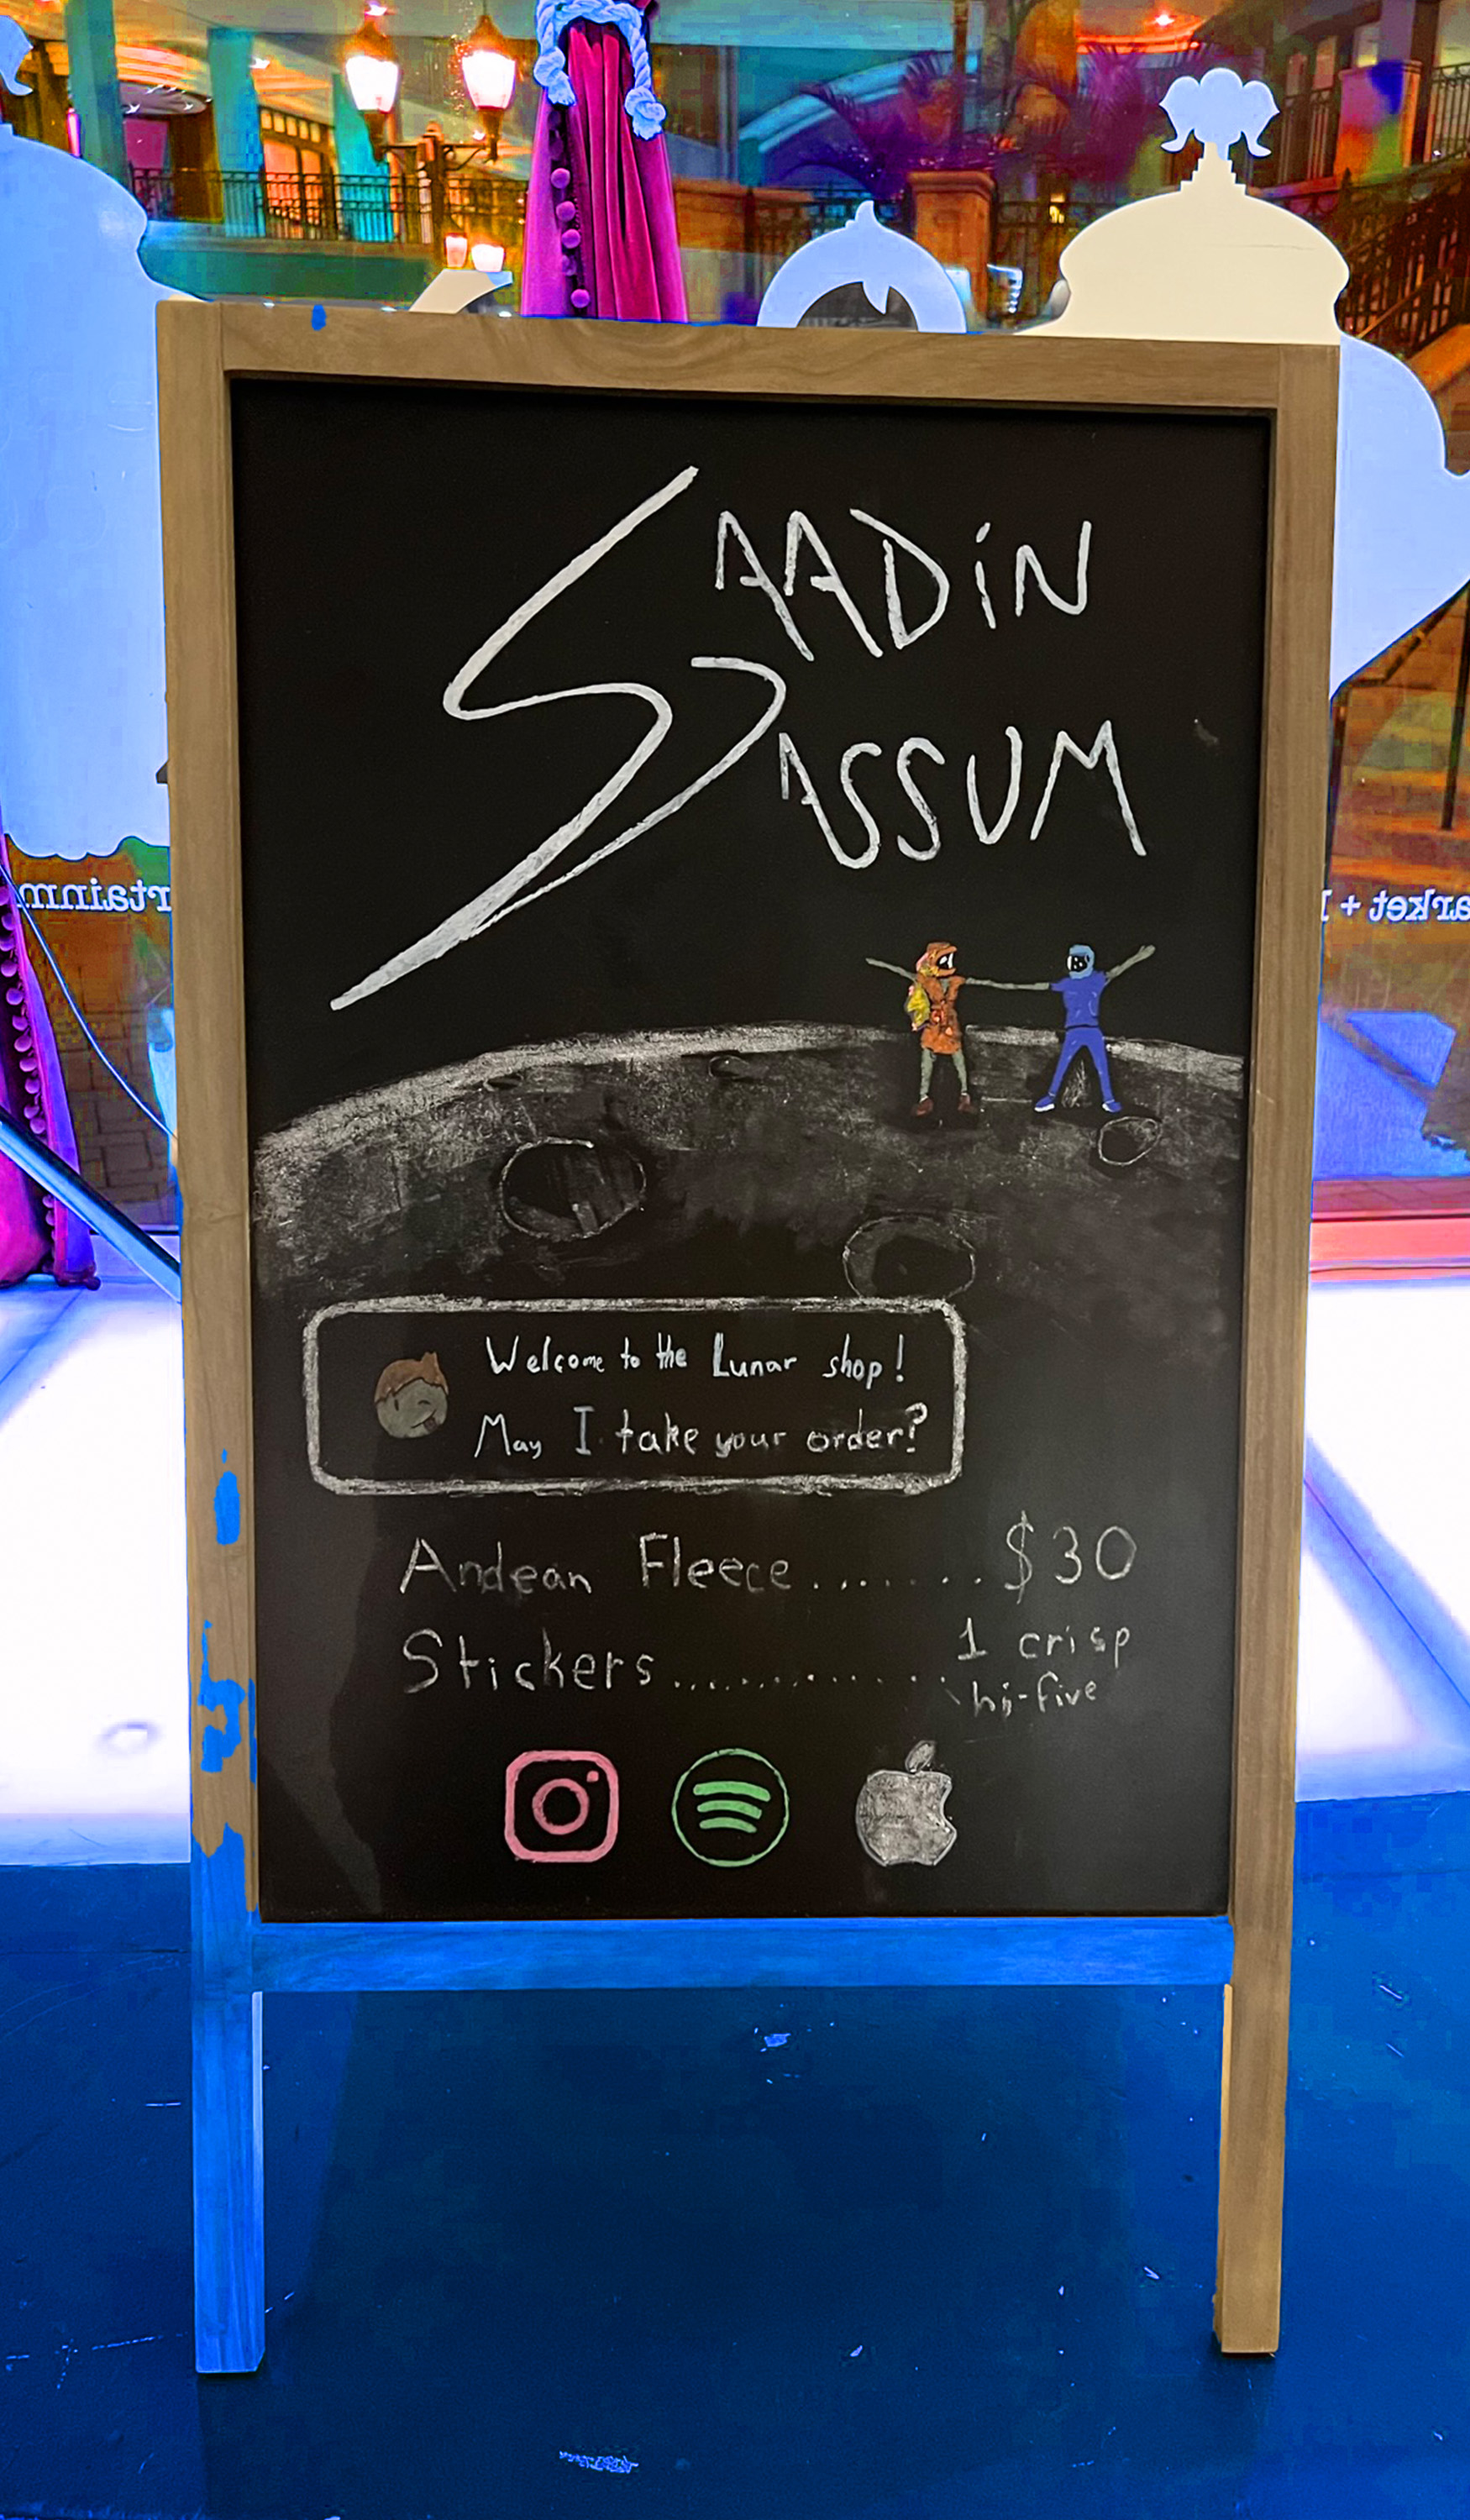 SAADiN
SASSUM
Welcome to the Lunar shop!
May I take your order?
Andean Fleece........$30
Stickers..............1 crisp
hi-five